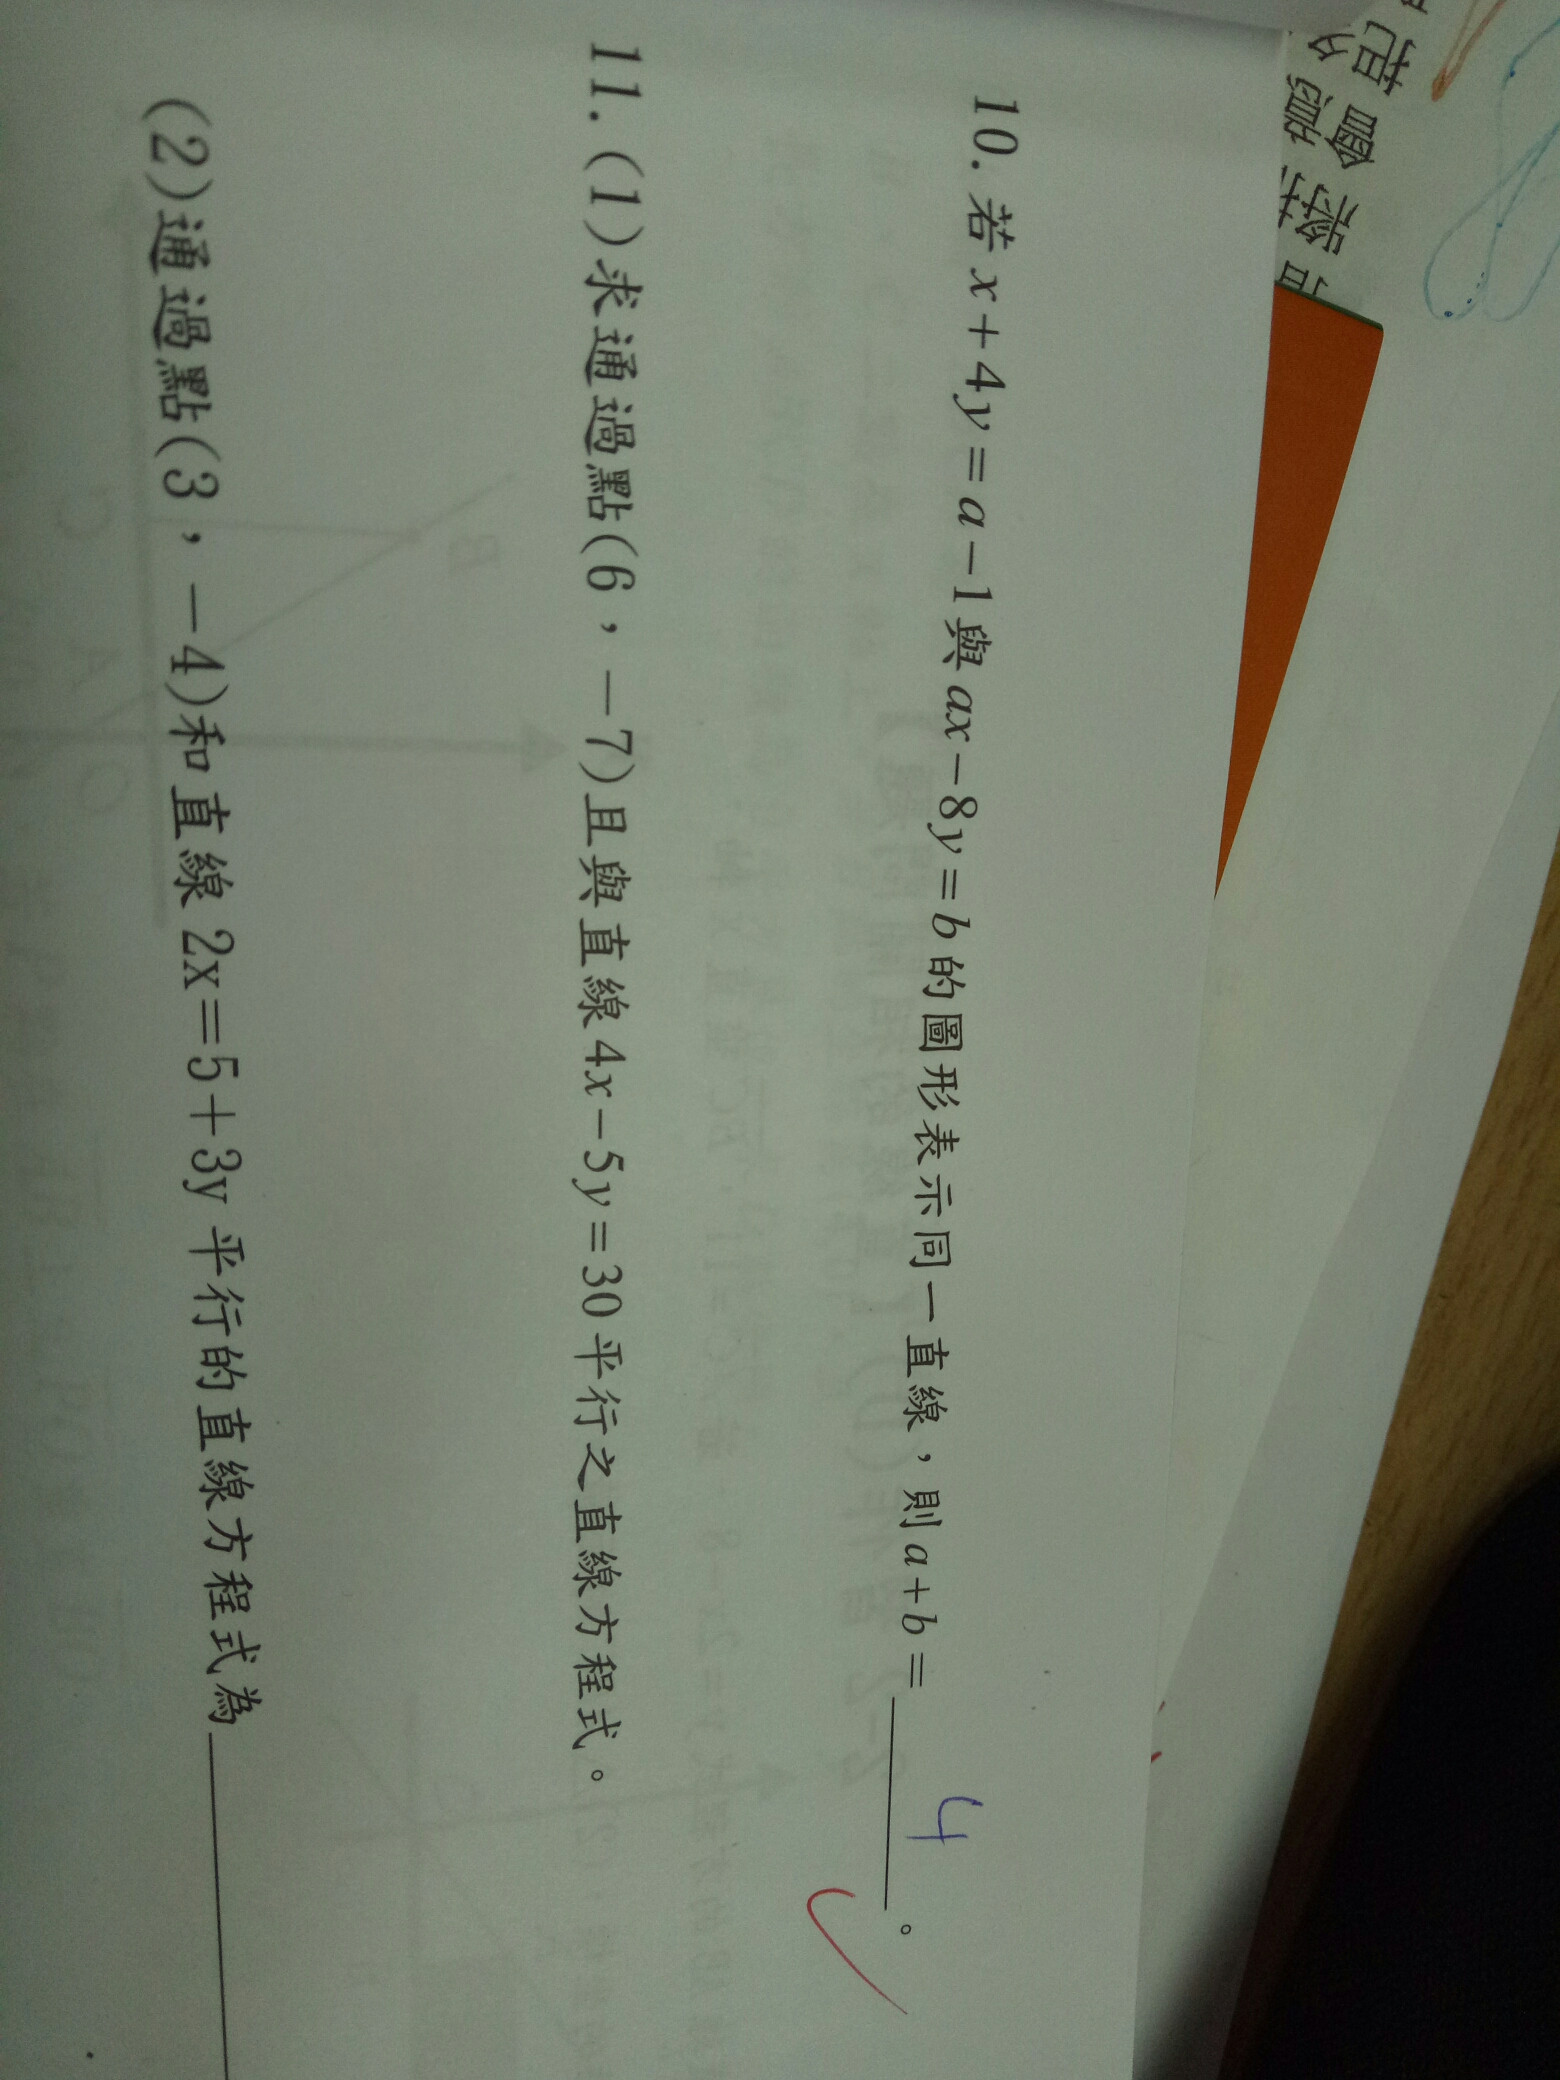 10. 若 x+4y=a-1 與 ax-8y=b 的圖形表示同一直線，則 a+b= 4 。
11. (1)求通過點(6，-7)且與直線 4x-5y=30 平行之直線方程式。
(2)通過點(3，-4)和直線 2x=5+3y 平行的直線方程式為